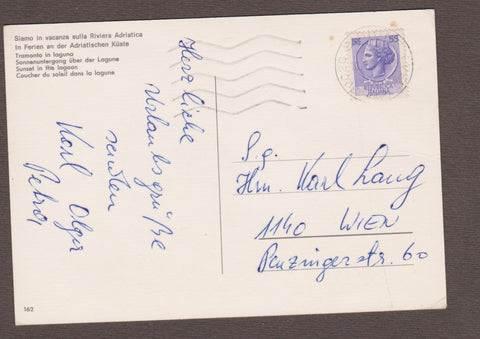 Siamo in vacanza sulla Riviera Adriatica
In Ferien an der Adriatischen Küste
Tramonto in laguna
Sonnenuntergang über der Lagune
Sunset in this lagoon
Coucher du soleil dans la lagune
Herzliche
Urlaubsgrüße
senden
Karl Olga
Petra
55
S.g.
Hrn. Karl Lang
1140 WIEN
Penzingerstr. 60
162